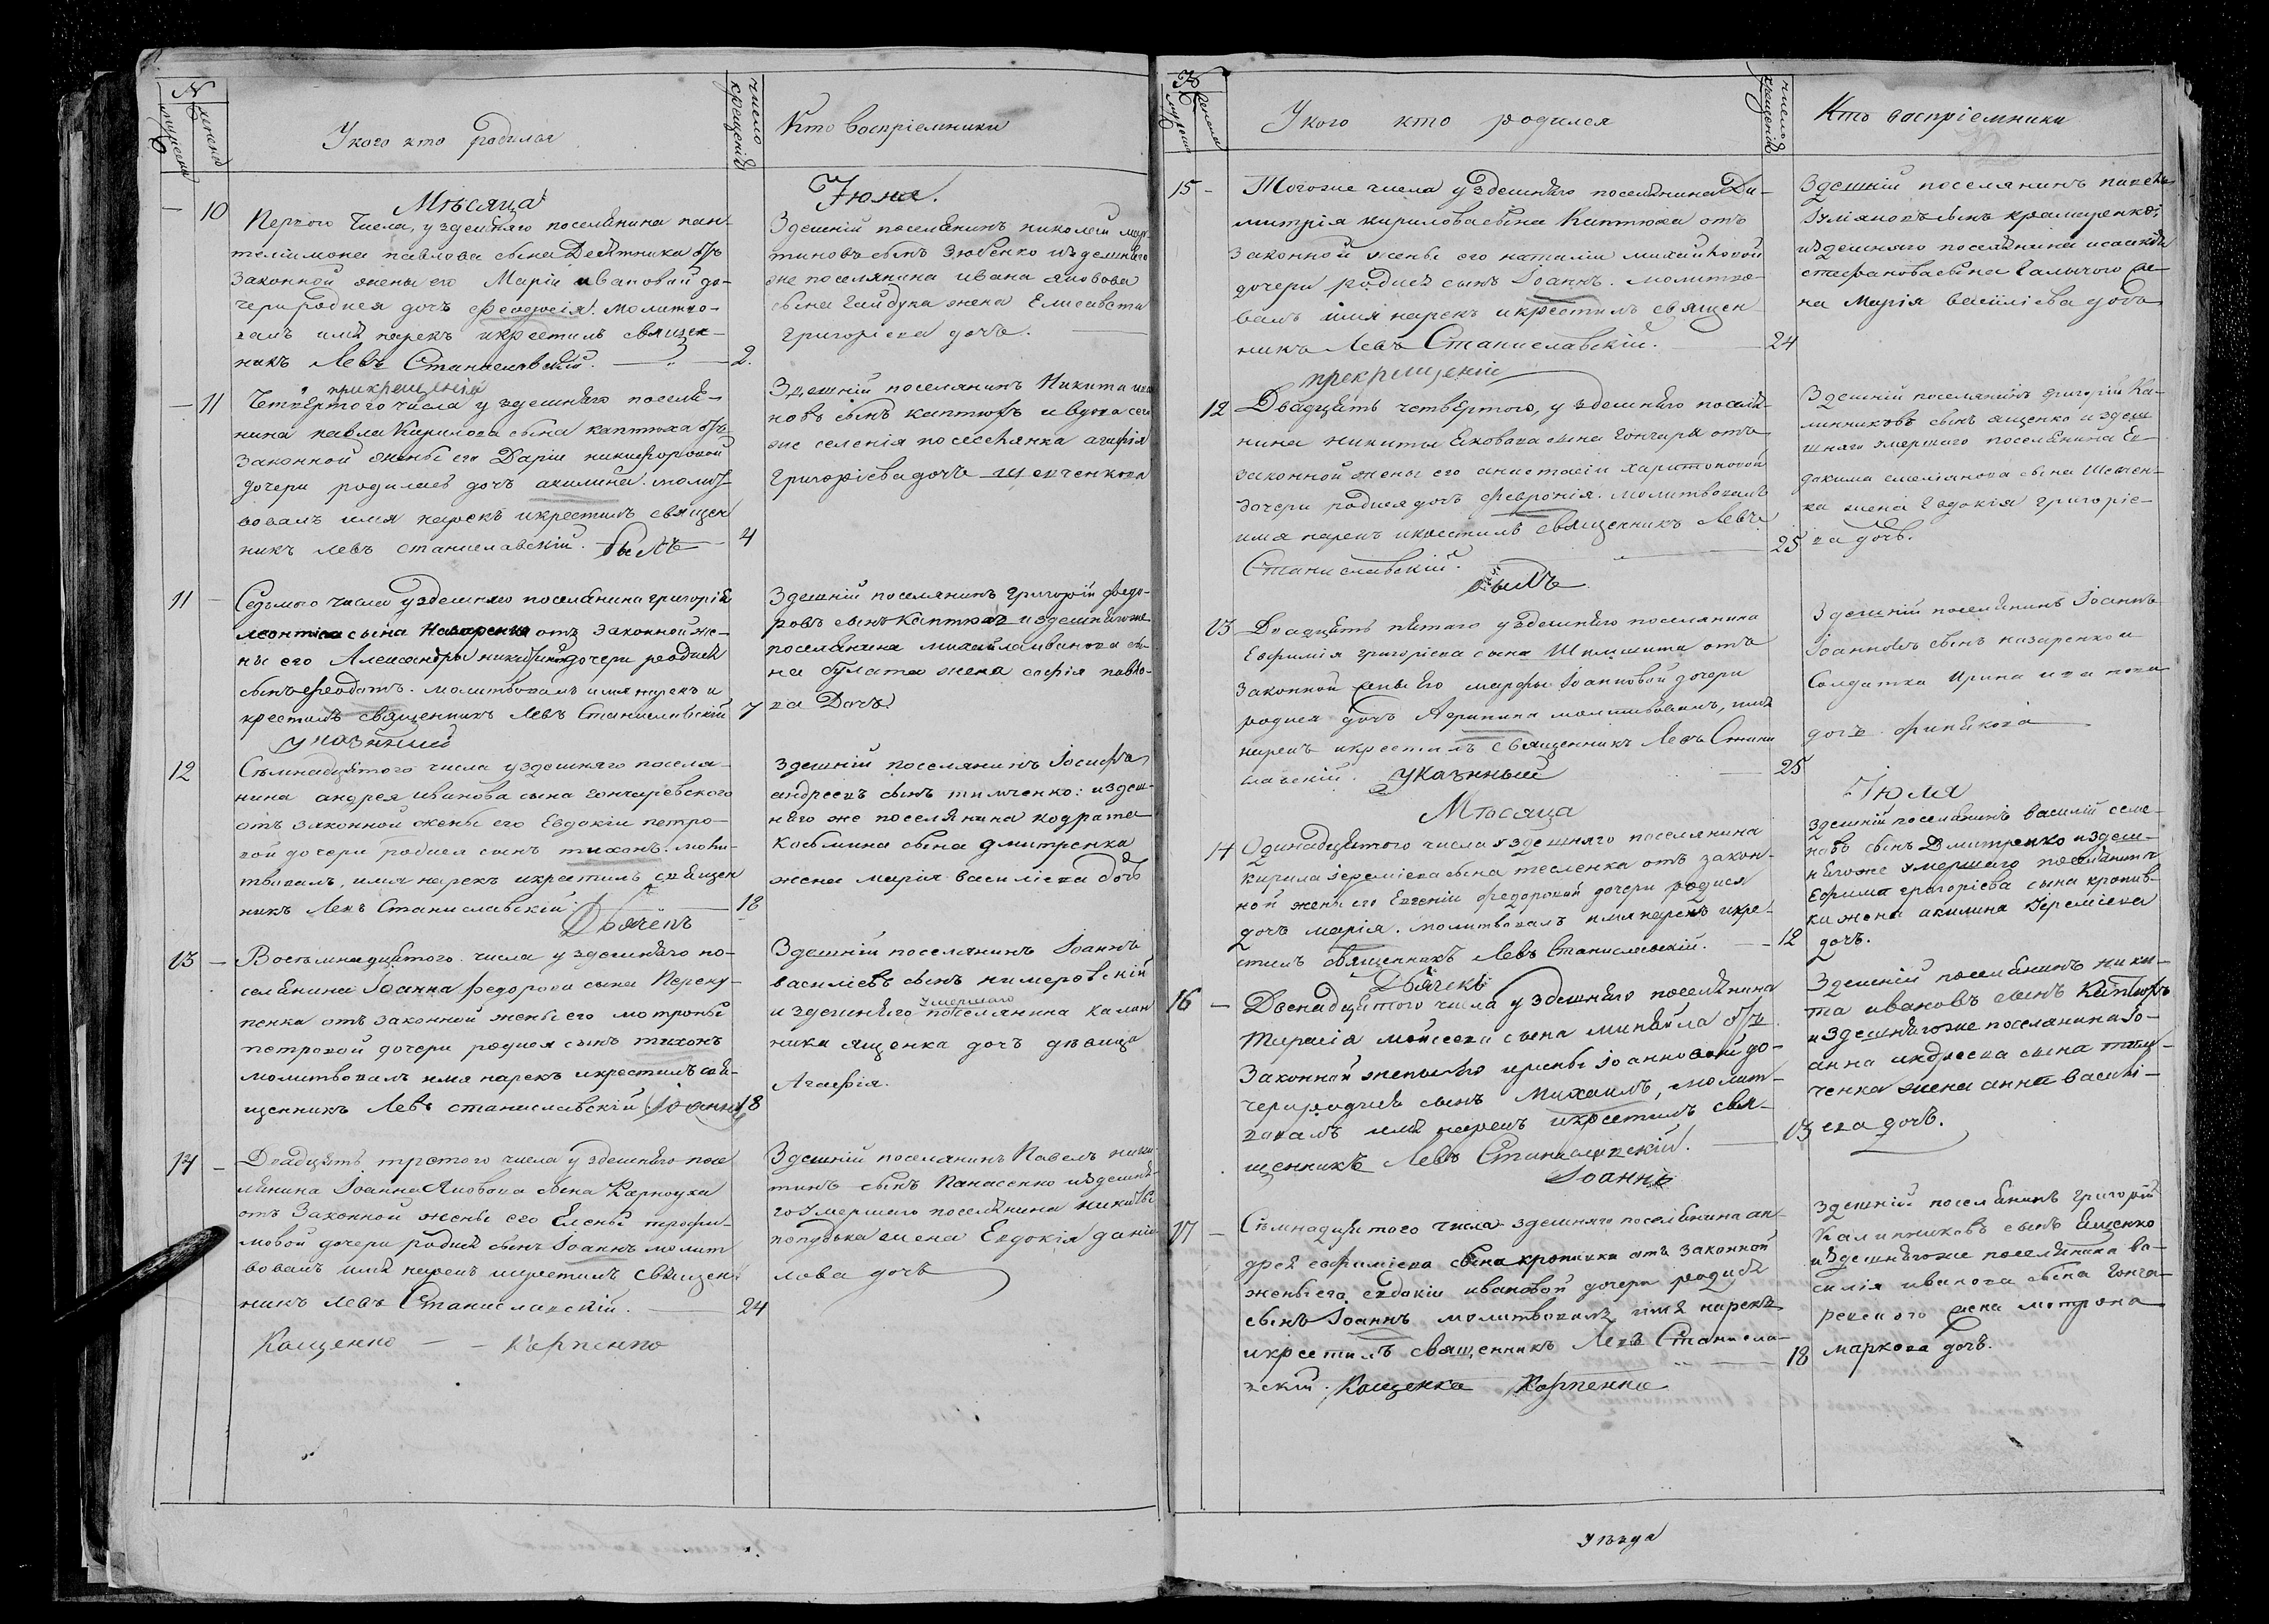 №
мужеска
женска
У кого кто родился
число крещенія
Кто воспріемники
Мѣсяца
Іюня.
10
Первого числа, у здешняго поселянина пан-
телимона павлова сына Десятника отъ
законной жены его Маріи ивановой до-
чери родися дочъ Феодосія. молитво-
валъ имя нарекъ икрестилъ священ-
никъ Левъ Станиславскій.
2.
Здешній поселянинъ николай мар-
тиновъ сынъ Зюбенко издешняго
же поселянина ивана яковова
сына Гайдука жена Елисавета
Григоріева дочъ.
прикрещеніи
11
Четвертого числа у здешняго поселя-
нина павла Кирилова сына каптюха отъ
законной жены его Даріи никифоровой
дочери родилась дочъ акилина. молит-
вовалъ имя нарекъ икрестилъ священ
никъ левъ станиславскій. былъ
4
Здешній поселянинъ Никита ива
новъ сынъ каптюхъ ивдова сего
же селенія поселянка агафія
Григоріева дочъ шевченкова
11
Седьмого числа уздешняго поселянина григорія
леонтіева сына Назаренка отъ законной же-
ны его Александры никитиной дочери родися
сынъ феодотъ. молитвовалъ имя нарекъ и
крестилъ священникъ Левъ Станиславскій
7
указнный
Здешній поселянинъ Григорій федо-
ровъ сынъ Каптюхъ издешняго же
поселянина михайла иванова сы-
на булата жена софія павло-
ва Дочъ
12
Съмнадцятого числа уздешняго поселя-
нина андрея иванова сына гончаревского
отъ законной жены его Евдокіи петро-
вой дочери родися сынъ тихонъ. моли-
твовалъ, имя нарекъ икрестилъ священ
никъ Левъ Станиславскій.
18
Дьячекъ
Здешній поселянинъ Іосифъ
андреевъ сынъ тимченко: издеш-
няго же поселянина кодрата
Косьмина сына дмитренка
жена марія василіева дочъ
13
Восъмнадцятого числа у здешняго по-
селянина Іоанна федорова сына Переку-
пенка отъ законной жены его мотроны
петровой дочери родися сынъ тихонъ
молитвовалъ имя нарекъ икрестилъ свя-
щенникъ Левъ станиславскій Іоаннъ
18
Здешній поселянинъ Іоаннъ
василіевъ сынъ нимеровскій
умершаго
и здешняго поселянина калин
ника ященка дочъ дѣвица
Агафія.
14
Двадцять третого числа у здешняго посе
лянина Іоанна Яковова сына Карноуха
отъ Законной жены его Елены трофи-
мовой дочери родися сынъ Іоаннъ молит
вовалъ имя нарекъ икрестилъ священ
никъ левъ Станиславскій.
24
Кащенко — Карпенко
Здешній поселянинъ Павелъ ники
тинъ сынъ Панасенко издешня
го умершаго поселянина никиты
попудька жена Евдокія даніи
лова дочъ
№
мужеска
женска
У кого кто родился
число крещенія
Кто воспріемники
15
Тогоже числа у здешняго поселянина Ди-
митрія кирилова сына Каптюха отъ
Законной жены его наталіи михайловой
дочери родися сынъ Іоаннъ. молитво-
валъ имя нарекъ икрестилъ священ-
никъ Левъ Станиславскій.
24
Здешній поселянинъ павелъ
кулиановъ сынъ крамаренко;
издешняго поселянина исаакія
стефанова сына Галичого же-
на Марія василіева дочъ
прекрещеніи
12
Двадцять четвертого, у здешняго поселя-
нина никиты Яковова сына Гончара отъ
законной жены его анастасіи харитоновой
дочери родися дочъ Февронія. молитвовалъ
имя нарекъ икрестилъ священникъ Левъ
Станиславскій.
25
былъ
Здешній поселянинъ Григорій Ка-
линниковъ сынъ ященко издеш
шняго умершаго поселянина Ев
докима емеліанова сына Шевчен-
ка жена Евдокія Григоріе-
ва дочъ.
13
Двадцять пятаго уздешняго поселянина
Евфимія григоріева сына отъ
законной жены его марфы Іоанновой дочери
родися дочъ Агрипина молитвовалъ, имя
нарекъ икрестилъ священникъ Левъ Стани
славскій. указнный
25
Здешній поселянинъ Іоаннъ
Іоанновъ сынъ назаренко и
Солдатка Ирина иванова
дочъ
Мѣсяца
Іюля
14
Одинадцятого числа уздешняго поселянина
Кирила іереміева сына тесленка отъ закон-
ной жены его Евгеніи федоровой дочери родися
дочъ марія. молитвовалъ имя нарекъ икре-
стилъ священникъ Левъ Станиславскій.
12
Дьячекъ
здешній поселянинъ василій семе-
новъ сынъ Дмитренко издеш-
нягоже умершаго поселянина
Ефима григоріева сына кропив-
ки жена акилина Іереміева
дочъ.
16
Двенадцятого числа у здешняго поселянина
Тарасія мойсеева сына минайла отъ
Законной жены его ирины Іоанновой до-
чери родися сынъ Михаилъ, молит-
вовалъ имя нарекъ икрестилъ свя-
щенникъ Левъ Станиславскій.
13
Іоаннъ
Здешній поселянинъ ники-
та ивановъ сынъ Каптюхъ
издешнягоже поселянина Іо-
анна андреева сына тим-
ченка жена анна васили-
ева дочъ.
17
Съмнадцятого числа здешняго поселянина ан-
дрея евфиміева сына кропивки отъ законной
жены его евдокіи ивановой дочери родися
сынъ Іоаннъ молитвовалъ имя нарекъ
икрестилъ священникъ Левъ Станисла-
вскій. Кащенка Карпенка
18
Здешній поселянинъ Григорій
Калинниковъ сынъ Ященко
издешнягоже поселянина ва-
силія иванова сына Гонча-
ревского жена мотрона
маркова дочъ.
уѣзда